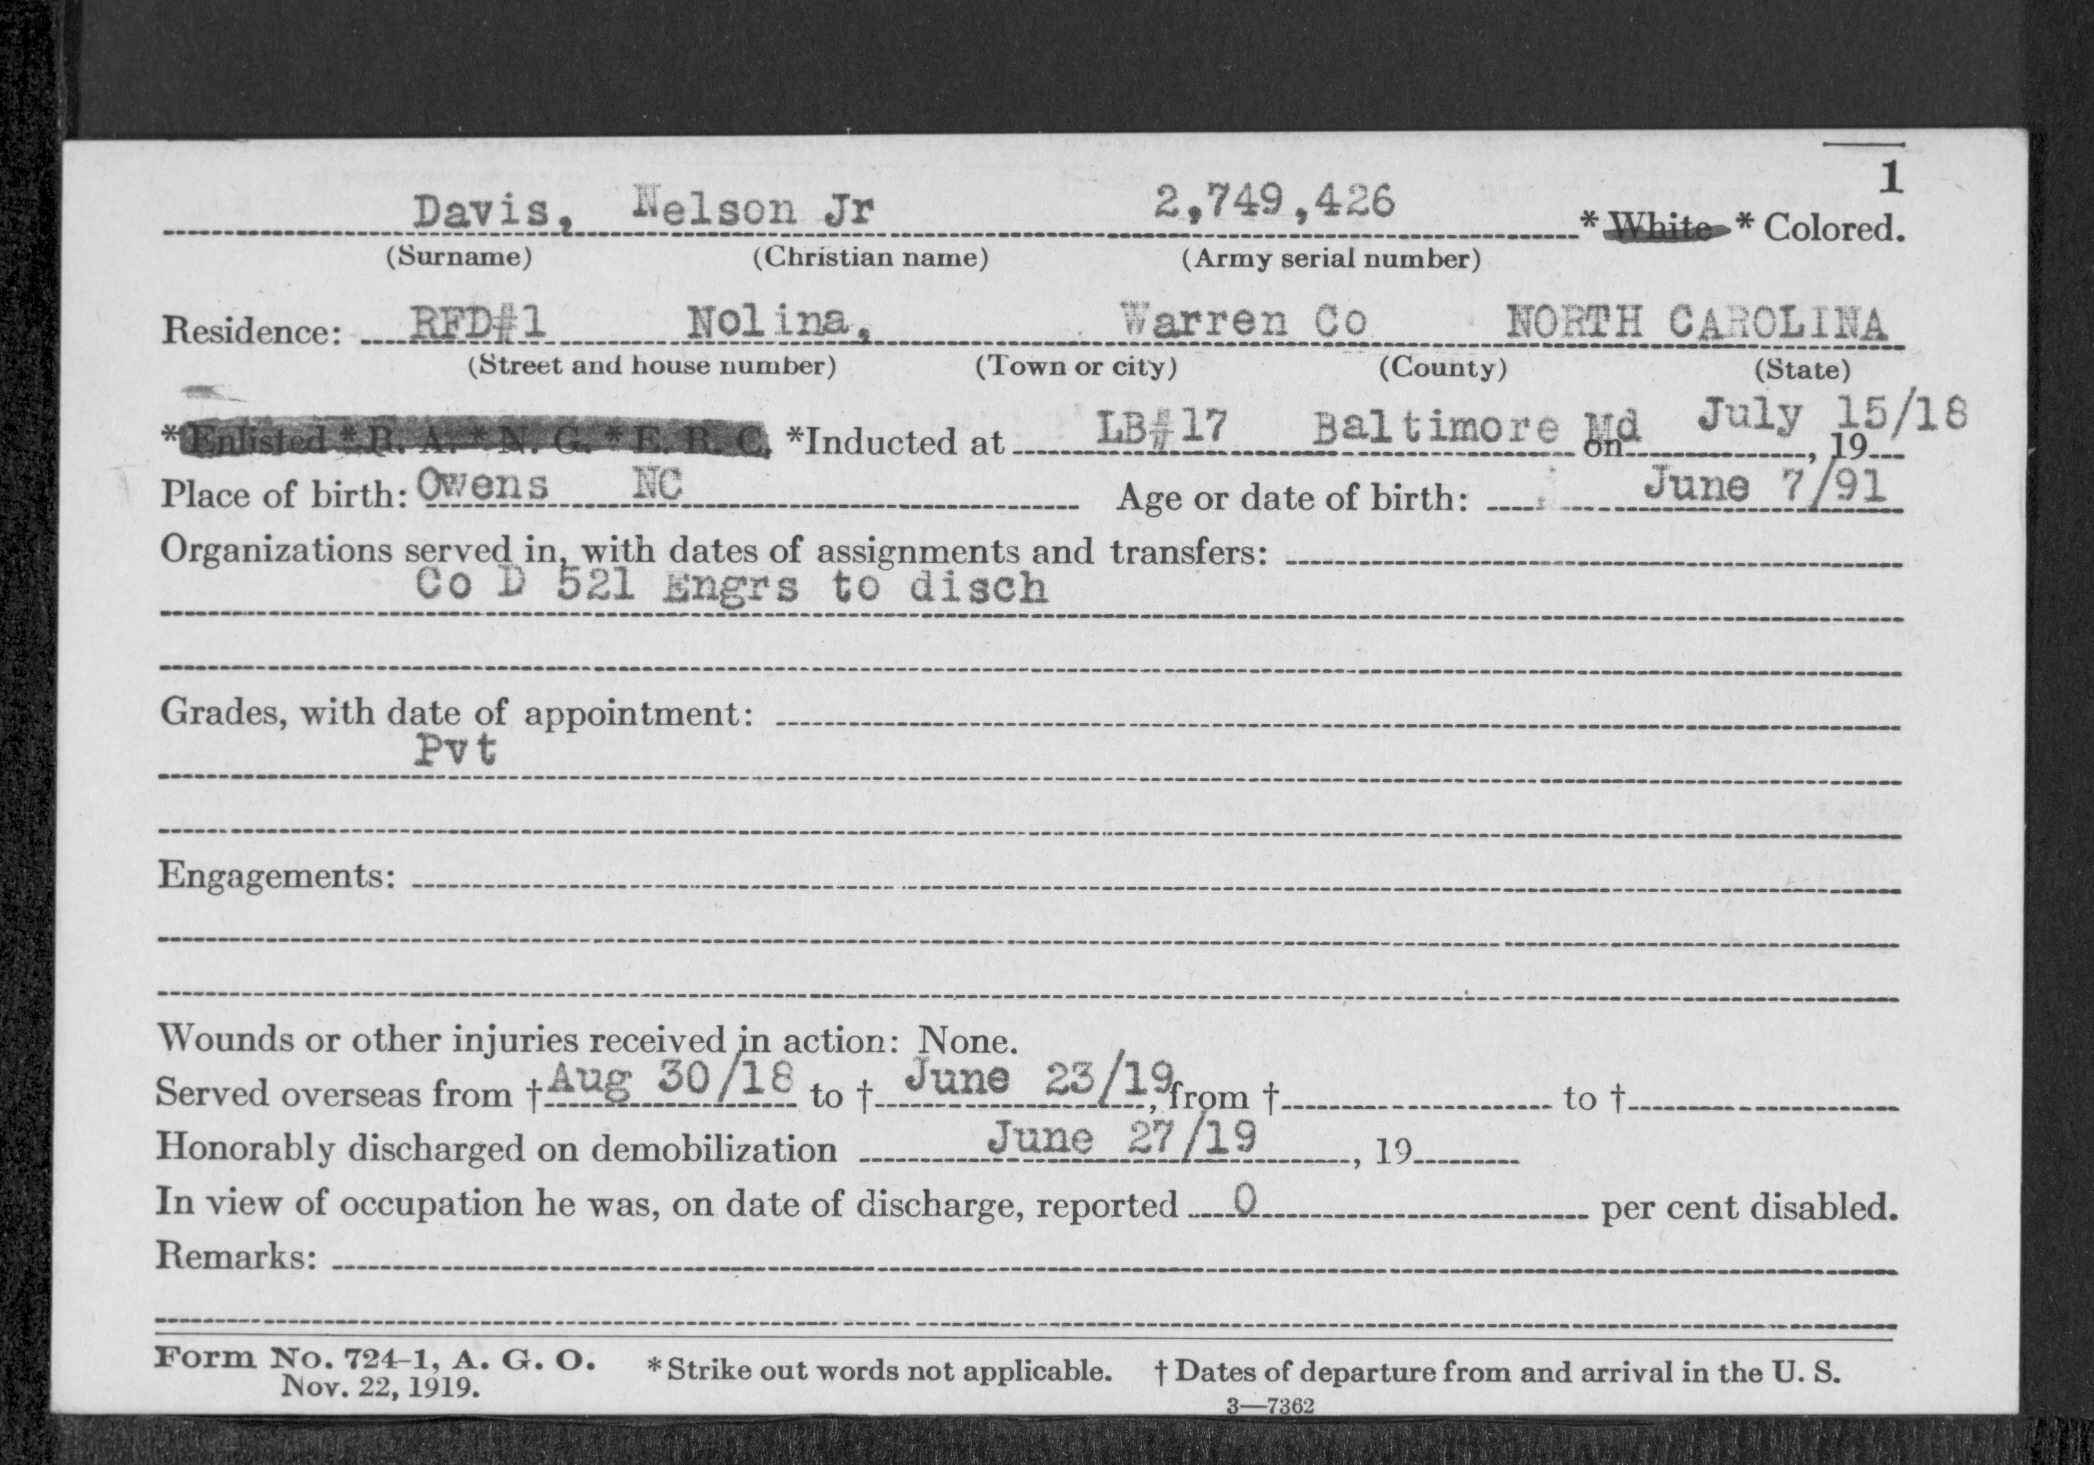 1
Davis, Nelson Jr 2,749,426 * White * Colored.
(Surname) (Christian name) (Army serial number)
Residence: RFD#1 Nolina, Warren Co NORTH CAROLINA
(Street and house number) (Town or city) (County) (State)
*Enlisted * R. A. * N. G. * E. R. C. *Inducted at LB#17 Baltimore Md on July 15/18, 19
Place of birth: Owens NC Age or date of birth: June 7/91
Organizations served in, with dates of assignments and transfers:
Co D 521 Engrs to disch
Grades, with date of appointment:
Pvt
Engagements:
Wounds or other injuries received in action: None.
Served overseas from † Aug 30/18 to † June 23/19, from † to †
Honorably discharged on demobilization June 27/19, 19
In view of occupation he was, on date of discharge, reported 0 per cent disabled.
Remarks:
Form No. 724-1, A. G. O. * Strike out words not applicable. † Dates of departure from and arrival in the U. S.
Nov. 22, 1919.
3—7362